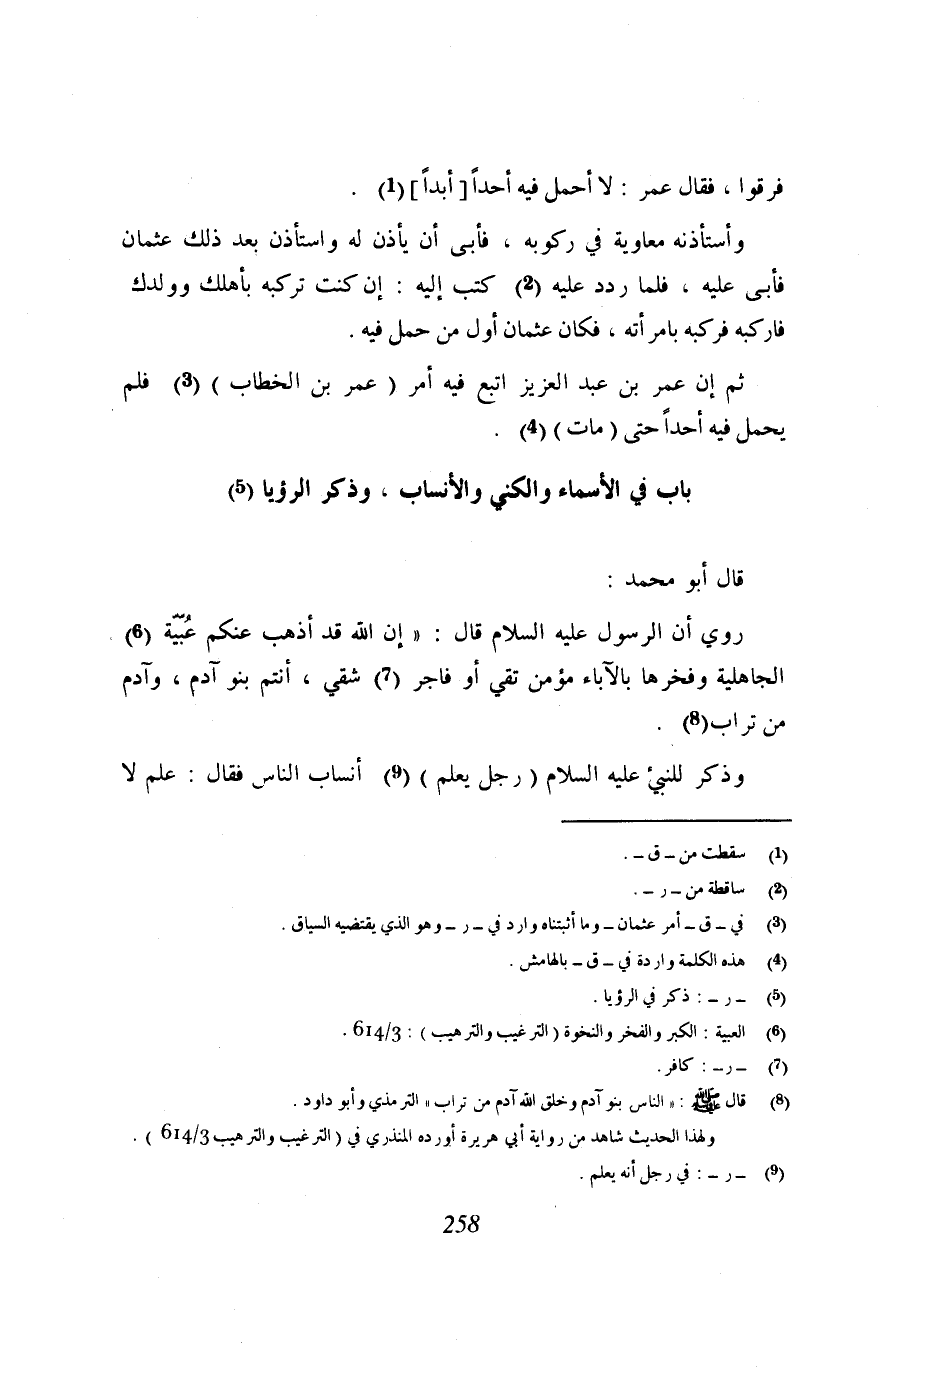 فرقوا ، فقال عمر : لا أحمل فيه أحداً [ أبداً ] (1) .
وأستأذنه معاوية في ركوبه ، فأبى أن يأذن له واستأذن بعد ذلك عثمان
فأبى عليه ، فلما ردد عليه (2) كتب إليه : إن كنت تركبه بأهلك وولدك
فاركبه فركبه بامرأته ، فكان عثمان أول من حمل فيه .
ثم إن عمر بن عبد العزيز اتبع فيه أمر ( عمر بن الخطاب ) (3) فلم
يحمل فيه أحداً حتى ( مات ) (4) .
باب في الأسماء والكني والأنساب ، وذكر الرؤيا (5)
قال أبو محمد :
روي أن الرسول عليه السلام قال : « إن الله قد أذهب عنكم عُبيّة (6)
الجاهلية وفخرها بالآباء مؤمن تقي أو فاجر (7) شقي ، أنتم بنو آدم ، وآدم
من تراب(8) .
وذكر للنبيْ عليه السلام ( رجل يعلم ) (9) أنساب الناس فقال : علم لا
(1) سقطت من – ق – .
(2) ساقطة من – ر – .
(3) في – ق – أمر عثمان – وما أثبتناه وارد في – ر – وهو الذي يقتضيه السياق .
(4) هذه الكلمة واردة في – ق – بالهامش .
(5) – ر – : ذكر في الرؤيا .
(6) العبية : الكبر والفخر والنخوة ( الترغيب والترهيب ) : 614/3 .
(7) – ر– : كافر .
(8) قال ﷺ : « الناس بنو آدم وخلق الله آدم من تراب » الترمذي وأبو داود .
ولهذا الحديث شاهد من رواية أبي هريرة أورده المنذري في ( الترغيب والترهيب 614/3 ) .
(9) – ر – : في رجل أنه يعلم .
258